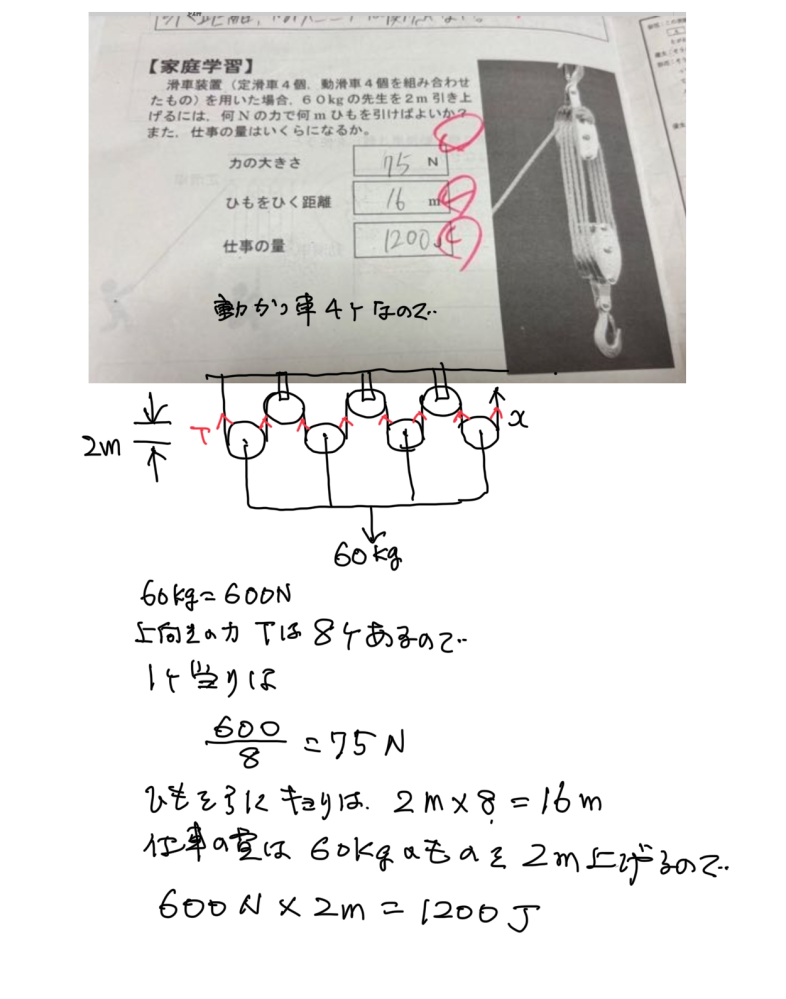 【家庭学習】
滑車装置（定滑車４個，動滑車４個を組み合わせ
たもの）を用いた場合，６０kgの先生を２ｍ引き上
げるには，何Ｎの力で何ｍひもを引けばよいか？
また，仕事の量はいくらになるか。
力の大きさ 75 N
ひもをひく距離 16 m
仕事の量 1200 J
動かっ車4ケなので‥
2m T x
60kg
60kg=600N
上向きの力 Tは8ケあるので‥
1ケ当りは
600/8 =75N
ひもを引くキョリは. 2m×8=16m
仕事の量は60kgのものを2m上げるので‥
600N×2m=1200J